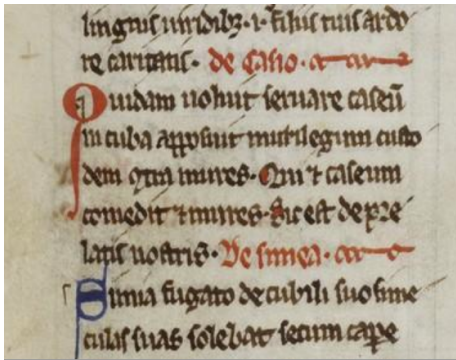 linguis uiridibꝫ ·i· ardo
re caritatis · de Caseo ·
Quidam uoluit seruare caseū
in cuba apposuit murilegum custo
dem ꝯtra mures · Qui ⁊ caseum
comedit ⁊ mures · Sic est de pre
latis nostris · De simea ·
Simia fugato de cubili suo sime
culas suas solebat secum cape